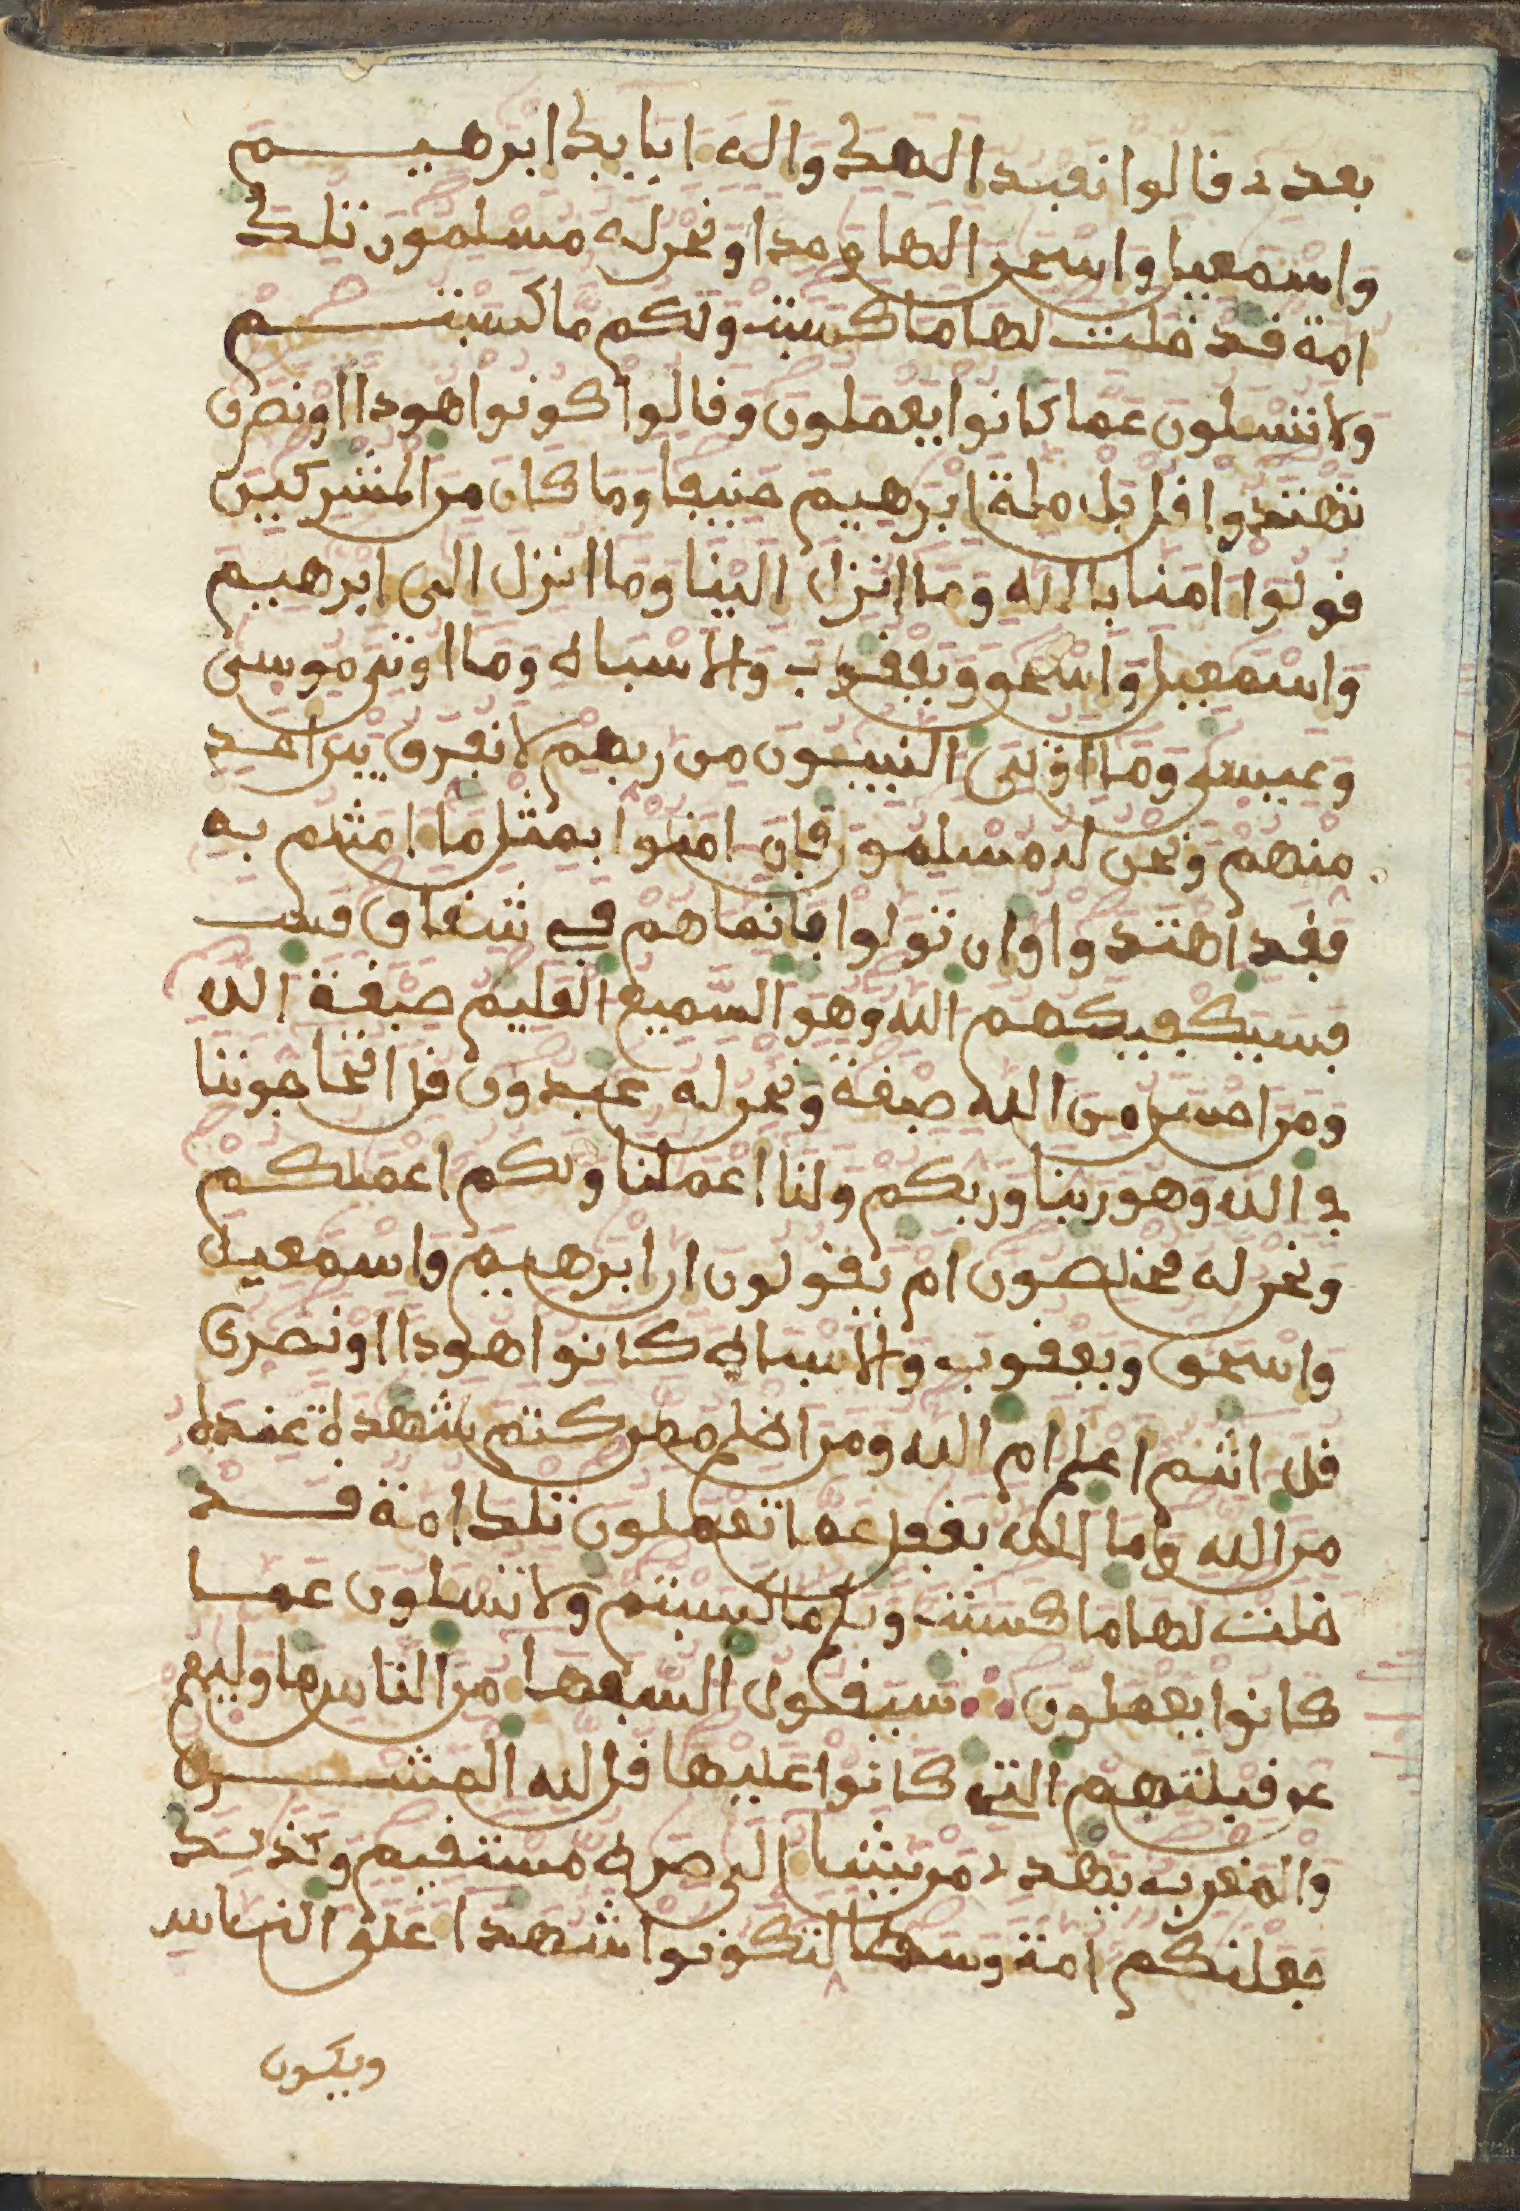 بعدى قالوا نعبد الهك واله ابايك ابرهيم
واسمعيل واسحق الها وحدا ونحن له مسلمون تلك
امة قد خلت لها ما كسبت ولكم ما كسبتم
ولا تسلون عما كانوا يعملون وقالوا كونوا هودا او نصرى
تهتدوا قل بل ملة ابرهيم حنيفا وما كان من المشركين
قولوا امنا بالله وما انزل الينا وما انزل الى ابرهيم
واسمعيل واسحق ويعقوب والاسباط وما اوتى موسى
وعيسى وما اوتى النبيون من ربهم لا نفرق بين احد
منهم ونحن له مسلمون فان امنوا بمثل ما امنتم به
فقد اهتدوا وان تولوا فانما هم في شقاق
فسيكفيكهم الله وهو السميع العليم صبغة الله
ومن احسن من الله صبغة ونحن له عبدون قل اتحاجوننا
في الله وهو ربنا وربكم ولنا اعملنا ولكم اعملكم
ونحن له مخلصون ام يقولون ان ابرهيم واسمعيل
واسحق ويعقوب والاسباط كانوا هودا او نصرى
قل انتم اعلم ام الله ومن اظلم ممن كتم شهدة عنده
من الله وما الله بغفل عما تعملون تلك امة قد
خلت لها ما كسبت ولكم ما كسبتم ولا تسلون عما
كانوا يعملون سيقول السفها من الناس ما وليهم
عن قبلتهم التي كانوا عليها قل لله المشرق
والمغرب يهدى من يشا الى صرط مستقيم وكذلك
جعلنكم امة وسطا لتكونوا شهدا على الناس
ويكون